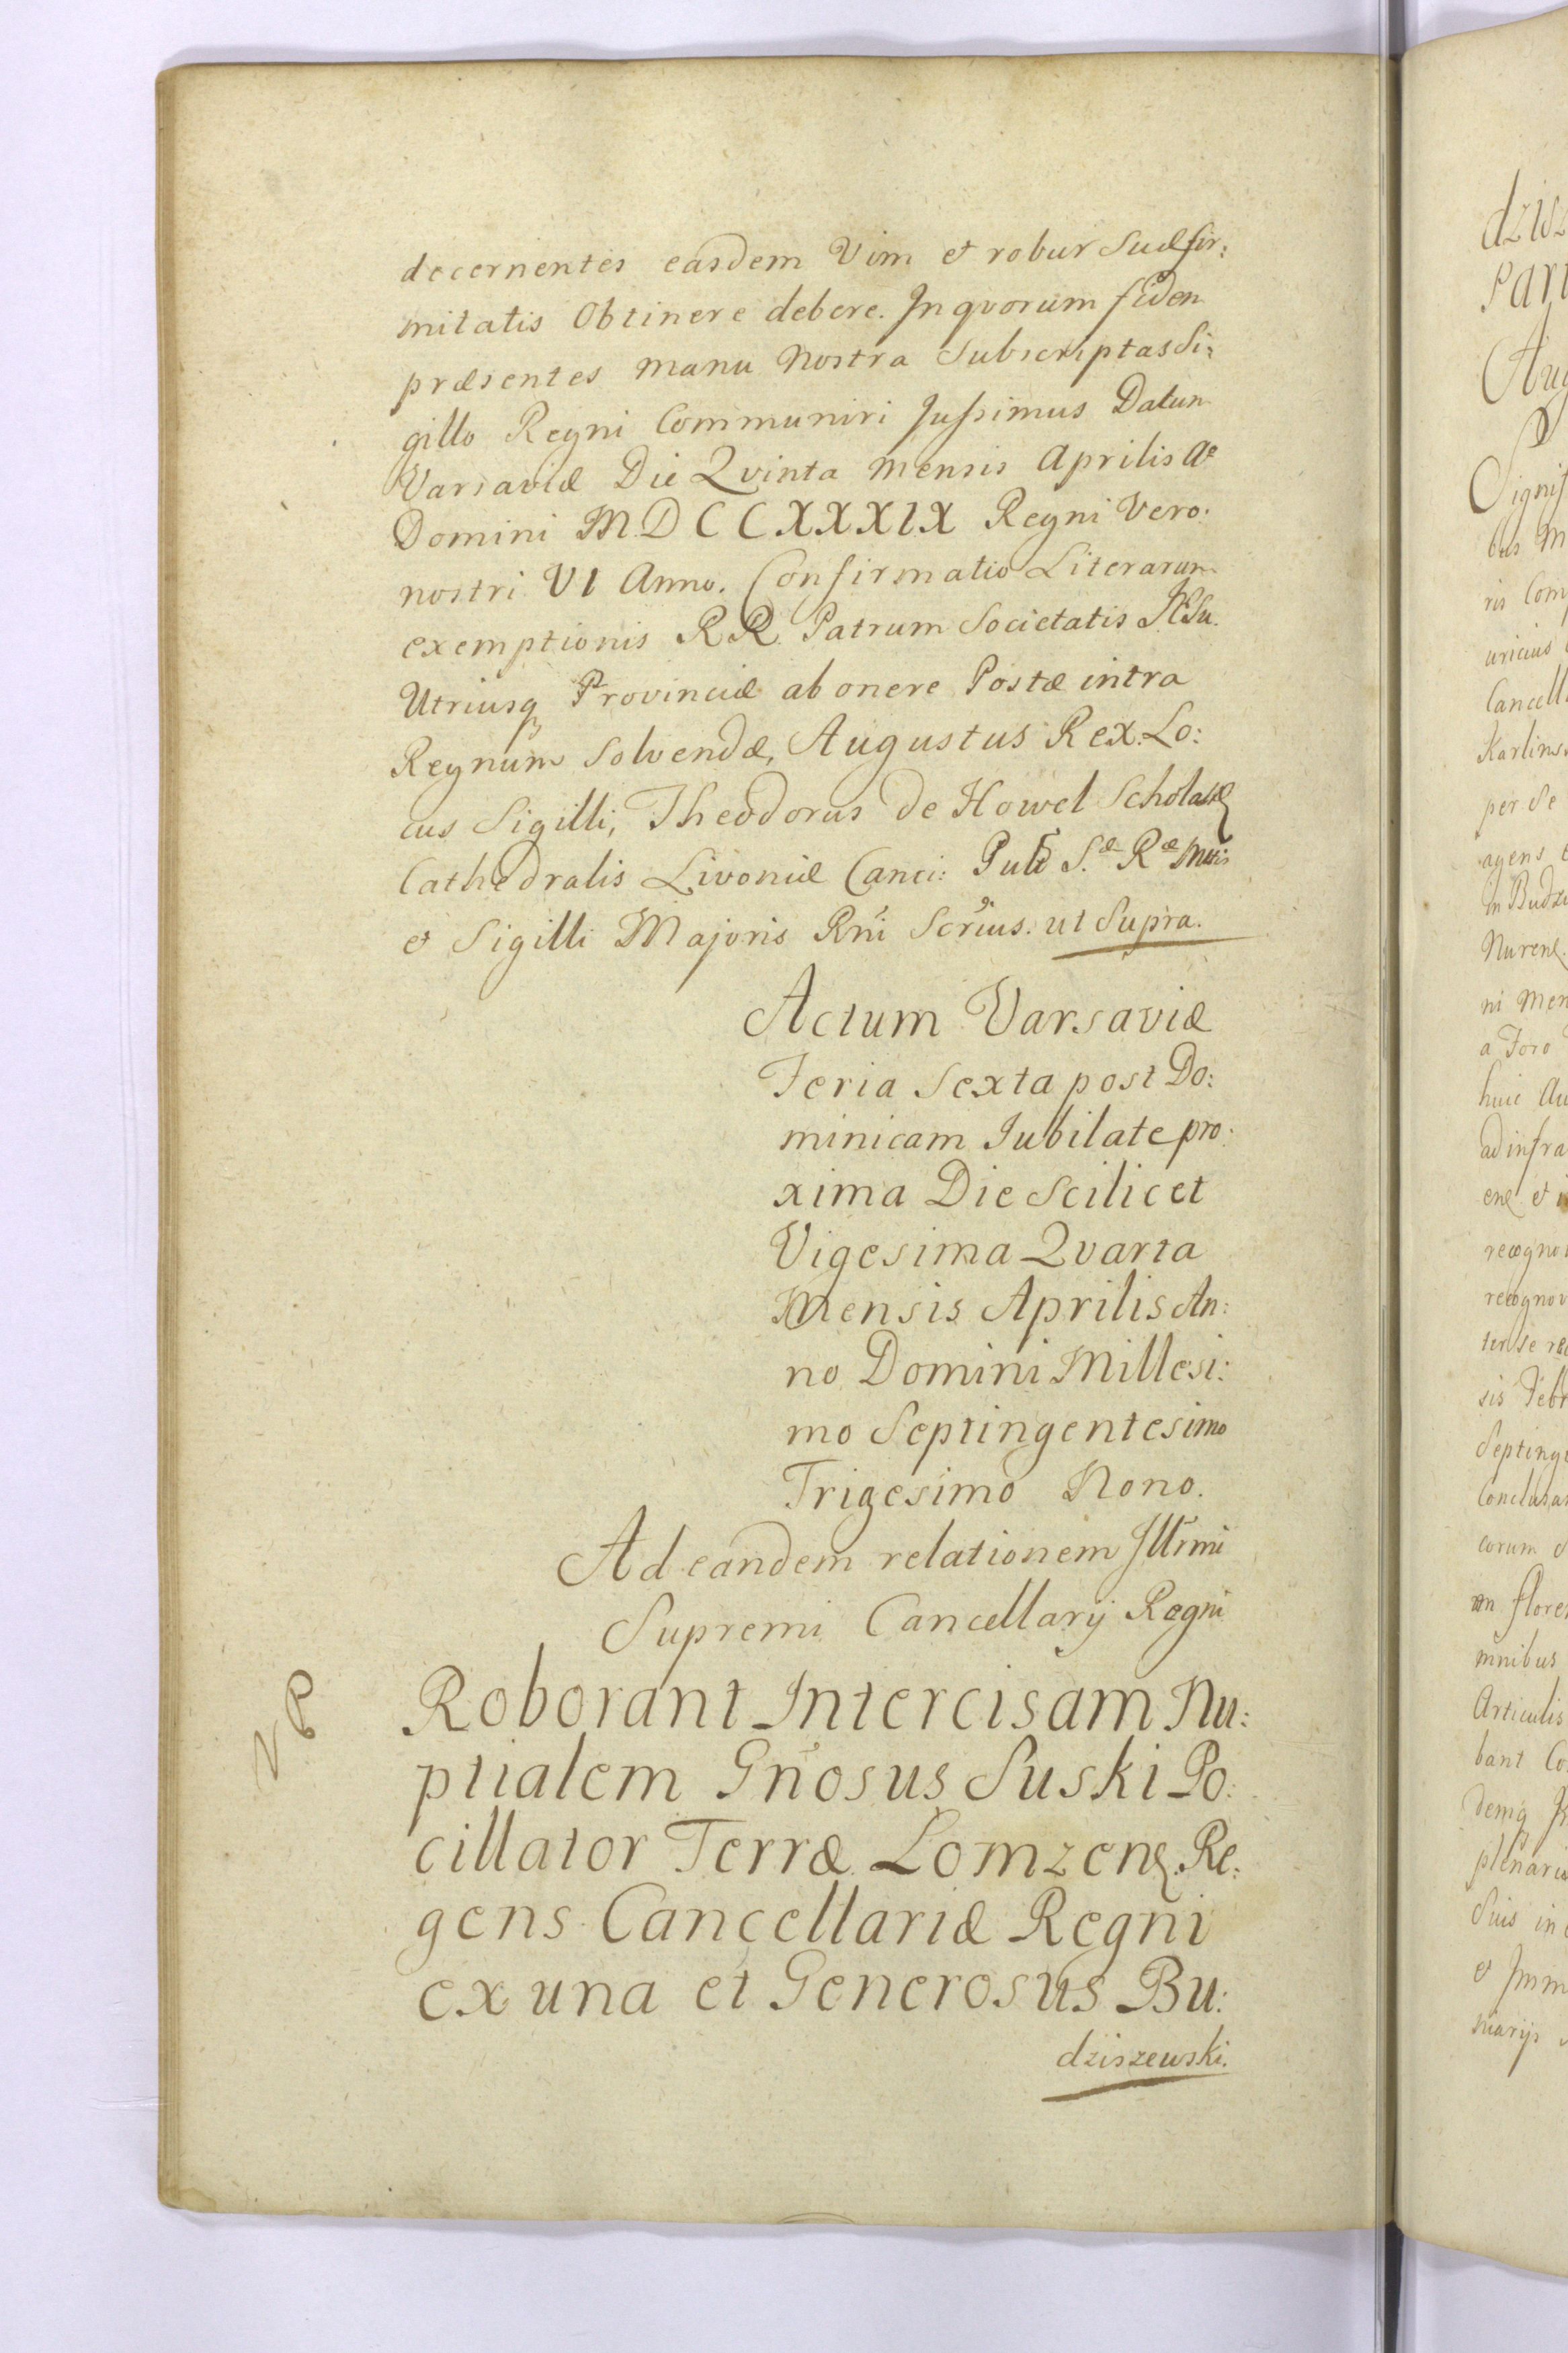 decernentes easdem Vim et robur Suæ fir:
mitatis Obtinere debere. In quorum fidem
præsentes manu Nostra Subscriptas Si:
gillo Regni Communiri Jussimus Datum
Varsaviæ Die Qvinta Mensis Aprilis Aº
Domini MDCCXXXIX Regni Vero
nostri VI Anno. Confirmatio Literarum
exemptionis RR. Patrum Societatis JESu
Utriusq Provinciæ ab onere Postæ intra
Regnum Solvendæ, Augustus Rex. Lo:
cus Sigilli, Theodorus de Howel
Cathedralis Livoniæ Canci: S.æ Ræ Mttis
et Sigilli Majoris Rni Scrius. ut Supra.
Actum Varsaviæ
Feria Sexta post Do:
minicam Jubilate pro:
xima Die Scilicet
Vigesima Qvarta
Mensis Aprilis An:
no Domini Millesi:
mo Septingentesimo
Trigesimo Nono.
Ad eandem relationem Illrmi
Supremi Cancellarij Regni
Roborant Intercisam Nu:
ptialem Gnosus Suski Po:
cillator Terræ Lomzens. Re:
gens Cancellariæ Regni
ex una et Generosus Bu:
dziszewski.
dzisz
Part
Aug
Signif
bus M
ris Com
uricius
Cancell
Karlins
per Se
agens
in Budzi
Nurens.
ni Men
a Foro
huic Au
ad infra
ens et
recogno
recognov
ter se re
sis Febr
Septing
Conclusa
corum
flore
mnibus
Articulis
bant Co
demq
plenario
Suis in
et Imm